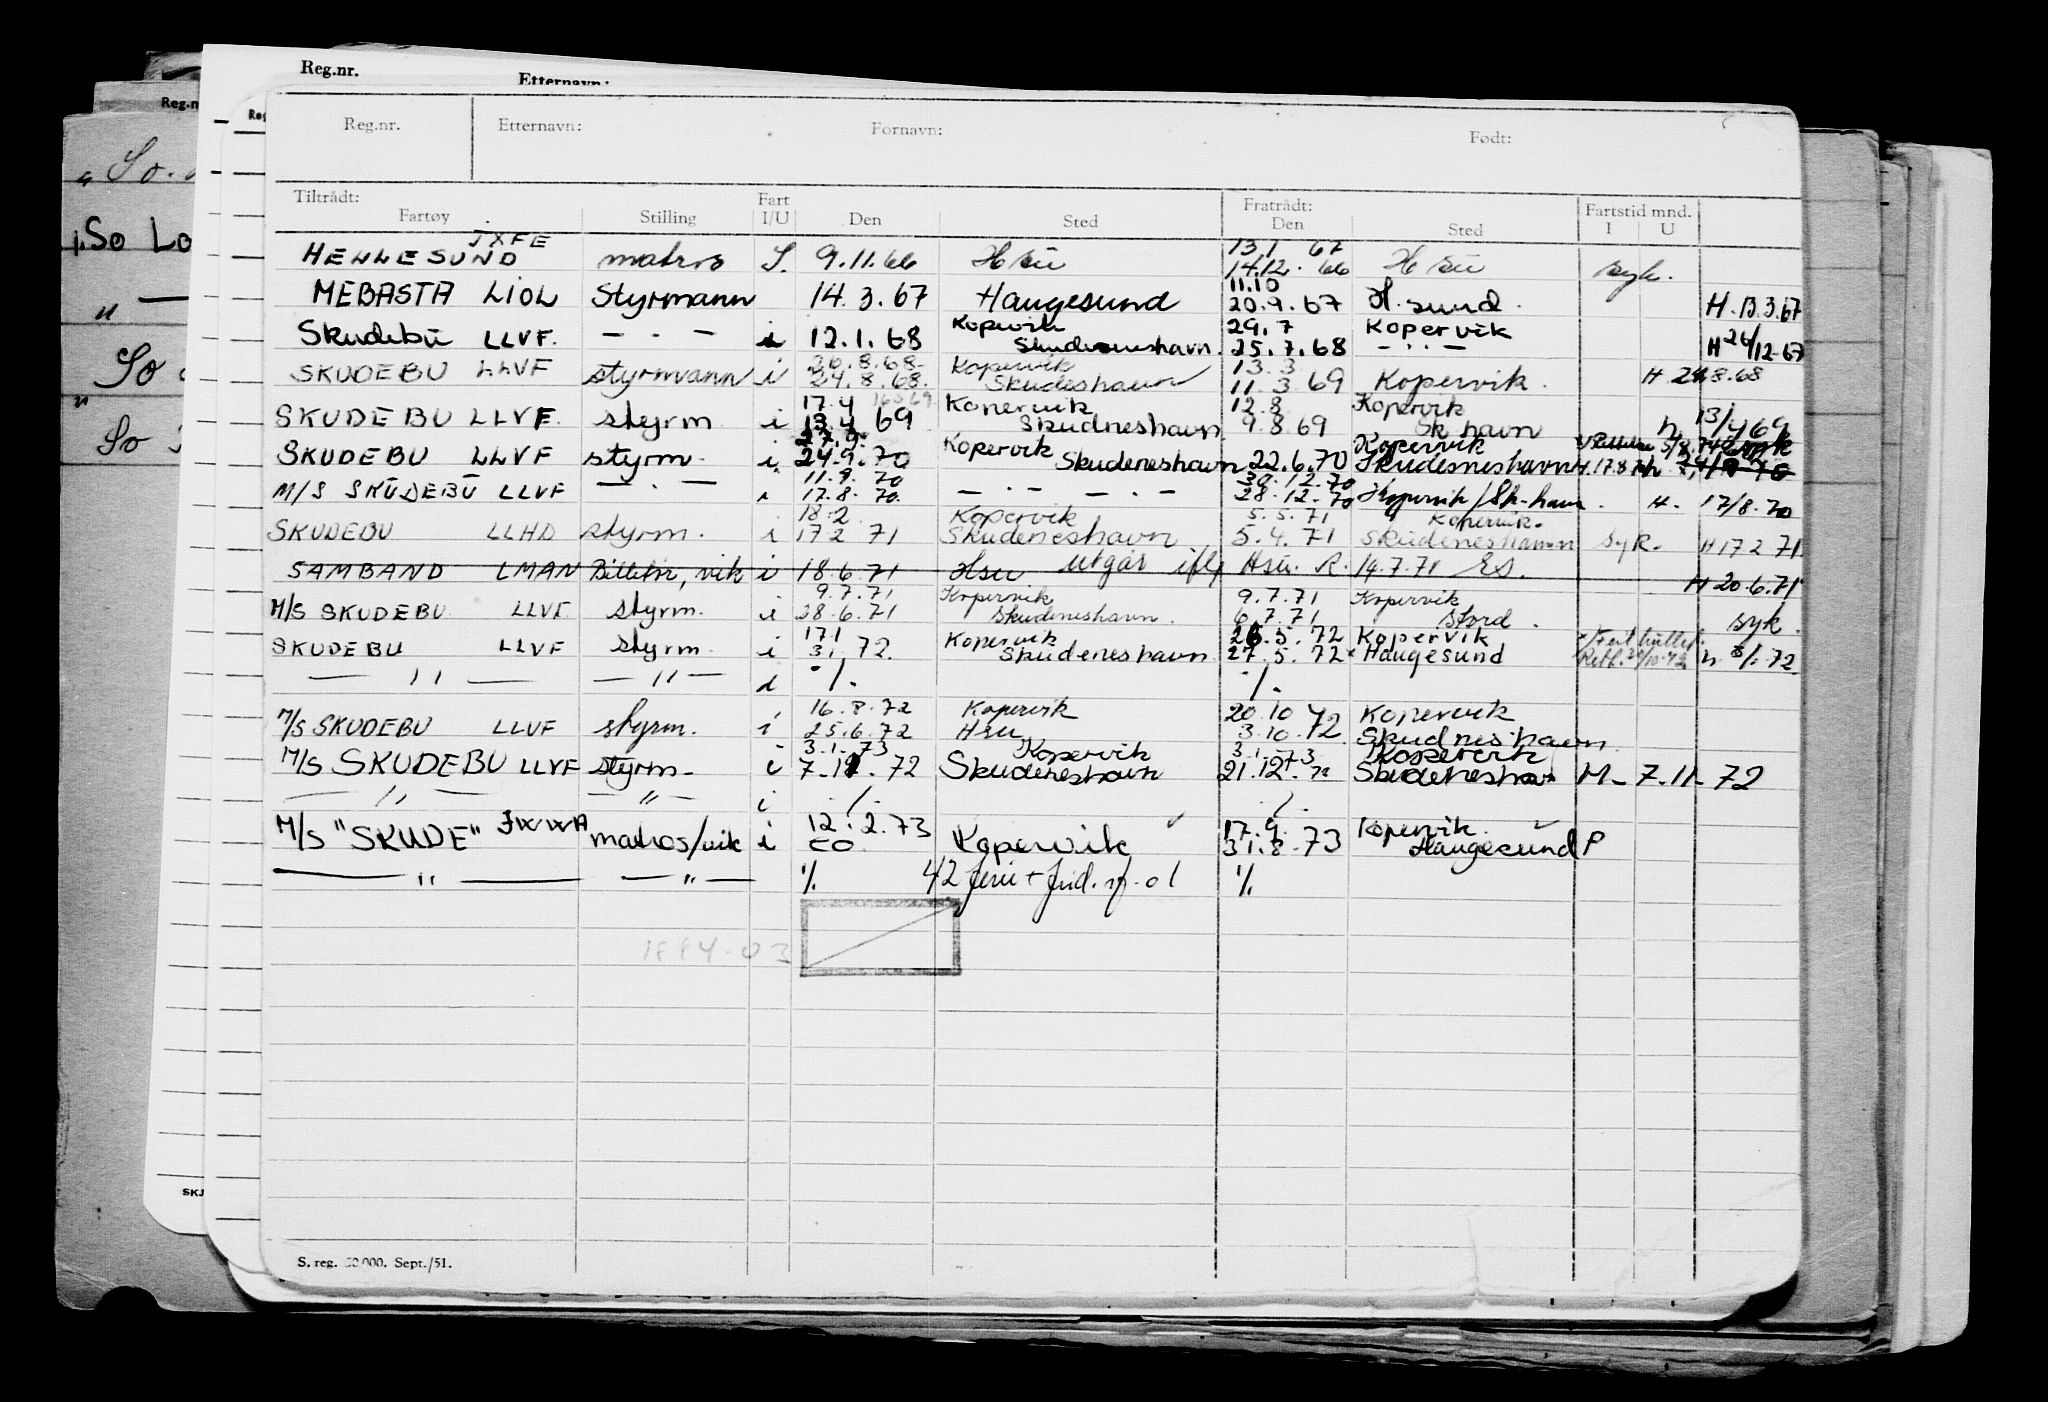 Reg.nr. Etternavn:
Reg.nr. Etternavn: Fornavn: Født:
Tiltrådt: Fartøy Stilling Fart I/U Den Sted Fratrådt: Den Sted Fartstid mnd. I U
JXFE 13.1 67
HELLESUND matros 9.11.66 H su 14.12.66 H su syk.
11.10
MEBASTA LIOL Styrmann 14.3.67 Haugesund 20.9.67 H.sund. H.13.3.67
Kopervik 29.7 Kopervik
Skudebu LLVF. — . — i 12.1.68 Skudeneshavn. 25.7.68 — . . — H 26/12-67
26.8.68 Kopervik 13.3
SKUDEBU LLVF styrmann i 24.8.68. Skudeshavn 11.3 69 Kopervik. H 24.8.68
17.4 Kopervik 12.8 Kopervik
SKUDEBU LLVF styrm i 13.4 69 Skudneshavn 9.8 69 Sk havn h. 13/4 69
27.9. Kopervik Kopervik
SKUDEBU LLVF styrm. i. 24.9.70 Skudeneshavn 22.6.70 Skudesneshavn
11.9.70 30.12.70
M/S SKUDEBU LLVF — . — i 17.8.70. — . — — . — 28.12.70 Kopervik/Sk-havn. H. 17/8.70
18.2 Kopervik 5.5.71 Kopervik.
SKUDEBU LLHD styrm. i 17 2 71 Skudeneshavn 5.4.71 Skudeneshavn syk. H 17 2 71
SAMBAND LMAN Billettør, vik i 18.6.71 Hsu utgår Hsu. R. 14.7.71 H 20.6.71
9.7.71 Kopervik 9.7.71 Kopervik
M/S SKUDEBU LLVF styrm. i 28.6.71 Skudeneshavn. 6.7.71 Stord syk.
17 1 Kopervik 26.5.72 Kopervik
SKUDEBU LLVF styrm i 3 1. 72. Skudeneshavn 27.5.72 Haugesund
— 11 — — 11 — i ./. ./.
16.8.72 Kopervik 20.10 Kopervik
M/S SKUDEBU LLVF styrm. i 25.6.72 Hsu 3.10.72 Skudneshavn
3.1.73 Kopervik 3.1.73 Kopervik
M/S SKUDEBU LLVF styrm- i 7.11.72 Skudeneshavn 21.12.72 Skudeneshavn H- 7.11-72
— 11 — — 11 — i ./. ./.
12.2.73 17.9. Kopervik
M/S "SKUDE" JWWA matros/vik i CO Kopervik 31.8.73 Haugesund P
— 11 — — 11 — ./. 42 ./.
1884-03
S. reg. 50 000. Sept./51.